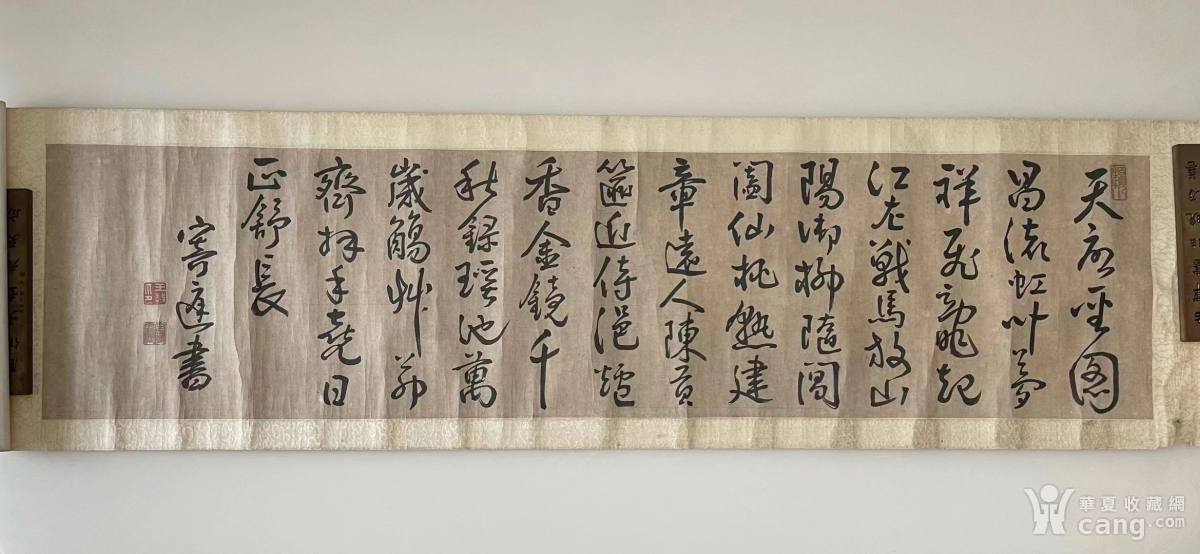 天啟聖圖
昌虹叶夢
祥飛龍起
江左戰馬放山
陽御柳隨閶
闔仙桃熟建
章遠人陳貢
篚近侍浥爐
香金鏡千
秋錄瑤池萬
歲觴艸茆
齊拜手堯日
正舒長
寄書
華夏收藏網
cang.com